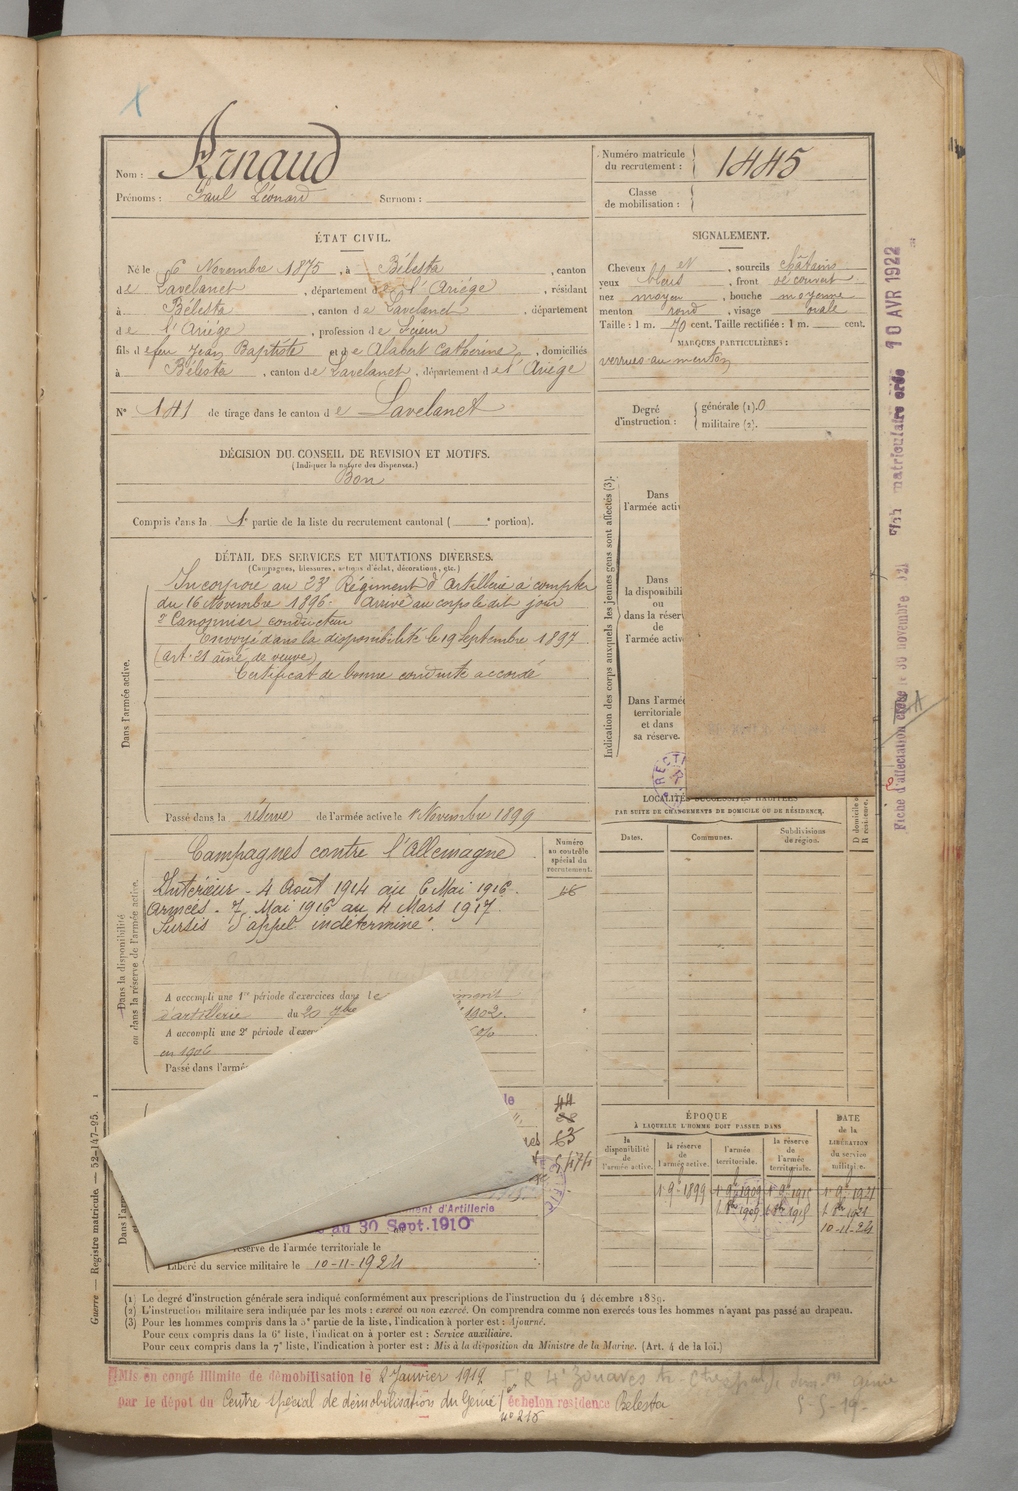 Nom : Arnaud
Prénoms : Paul Léonard Surnom :
Numéro matricule
du recrutement : 1445
Classe
de mobilisation :
ÉTAT CIVIL.
Né le 6 Novembre 1875, à Bélesta, canton
de Lavelanet, département de l'Ariége, résidant
à Bélesta, canton de Lavelanet, département
de l'Ariége, profession de
fils de feu Jean Baptiste et de Alabert Catherine, domiciliés
à Bélesta, canton de Lavelanet, département de l'Ariége
N° 141 de tirage dans le canton de Lavelanet
SIGNALEMENT.
Cheveux et, sourcils châtains
yeux bleus, front découvert
nez moyen, bouche moyenne
menton rond, visage ovale
Taille : 1 m. 70 cent. Taille rectifiée : 1 m. cent.
MARQUES PARTICULIÈRES :
verrues au menton
Degré
d'instruction :
générale (1). 0
militaire (2).
DÉCISION DU CONSEIL DE REVISION ET MOTIFS.
(Indiquer la nature des dispenses.)
Bon
Compris dans la 1e partie de la liste du recrutement cantonal ( e portion).
DÉTAIL DES SERVICES ET MUTATIONS DIVERSES.
(Campagnes, blessures, actions d'éclat, décorations, etc.)
Dans l'armée active.
Incorporé au 23e Régiment d'Artillerie à compter
du 16 Novembre 1896. Arrivé au corps le dit jour
2e Canonnier conducteur
Envoyé dans la disponibilité le 19 Septembre 1897
(art. 21 ainé de veuve)
Certificat de bonne conduite accordé
Passé dans la réserve de l'armée active le 1 Novembre 1899
Indication des corps auxquels les jeunes gens sont affectés (3).
Dans
l'armée active
Dans
la disponibili
ou
dans la réserv
de
l'armée active
Dans l'armée
territoriale
et dans
sa réserve.
LOCALITÉS SUCCESSIVES HABITÉES
PAR SUITE DE CHANGEMENTS DE DOMICILE OU DE RÉSIDENCE.
Dates.
Communes.
Subdivisions
de région.
D domicile o
R résidence.
Dans la disponibilité
ou dans la réserve de l'armée active.
Campagnes contre l'Allemagne
Numéro
au contrôle
spécial du
recrutement.
Intérieur - 4 Août 1914 au 6 Mai 1916.
Armées - 7 Mai 1916 au 4 Mars 1917.
Sursis d'appel indéterminé.
A accompli une 1re période d'exercices dans le
d'artillerie du 20 1902.
A accompli une 2e période d'exer
en 1906
Passé dans l'armé
44
63
ment d'Artillerie
au 30 Sept. 1910
réserve de l'armée territoriale le
Libéré du service militaire le 10-11-1924
ÉPOQUE
À LAQUELLE L'HOMME DOIT PASSER DANS
la
disponibilité
de
l'armée active.
la réserve
de
l'armée active.
l'armée
territoriale.
la réserve
de
l'armée
territoriale.
DATE
de la
LIBÉRATION
du service
militaire.
1 9e 1899 1 9e 1909 1 9e 1915 1 9e 1921
1 8bre 1909 1 8bre 1915 1 8bre 1921
10-11-24
(1) Le degré d'instruction générale sera indiqué conformément aux prescriptions de l'instruction du 4 décembre 1889.
(2) L'instruction militaire sera indiquée par les mots : exercé ou non exercé. On comprendra comme non exercés tous les hommes n'ayant pas passé au drapeau.
(3) Pour les hommes compris dans la 5e partie de la liste, l'indication à porter est : Ajourné.
Pour ceux compris dans la 6e liste, l'indication à porter est : Service auxiliaire.
Pour ceux compris dans la 7e liste, l'indication à porter est : Mis à la disposition du Ministre de la Marine. (Art. 4 de la loi.)
Mis en congé illimité de démobilisation le 2 Janvier 1919
par le dépôt du Centre spécial de démobilisation du Génie échelon résidence Bélesta
n° 215
4e Zouaves
5-5-19-
Guerre — Registre matricule — 52-147-95.
matriculaire 10 AVR 1922
Fiche d'affectation 30 novembre